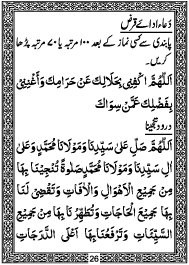 دُعاء ادائے قرض
پابندی سے کسی نماز کے بعد ۱۰۰ مرتبہ یا ۷۰ مرتبہ پڑھا
کریں۔
اَللّٰهُمَّ اكْفِنِيْ بِحَلَالِكَ عَنْ حَرَامِكَ وَاَغْنِنِيْ
بِفَضْلِكَ عَمَّنْ سِوَاكَ
درود تنجینا
اَللّٰهُمَّ صَلِّ عَلٰى سَيِّدِنَا وَمَوْلَانَا مُحَمَّدٍ وَّعَلٰى
اٰلِ سَيِّدِنَا وَمَوْلَانَا مُحَمَّدٍ صَلٰوةً تُنْجِيْنَا بِهَا
مِنْ جَمِيْعِ الْاَهْوَالِ وَالْاٰفَاتِ وَتَقْضِيْ لَنَا
بِهَا جَمِيْعَ الْحَاجَاتِ وَتُطَهِّرُنَا بِهَا مِنْ جَمِيْعِ
السَّيِّئَاتِ وَتَرْفَعُنَا بِهَا اَعْلَى الدَّرَجَاتِ
26